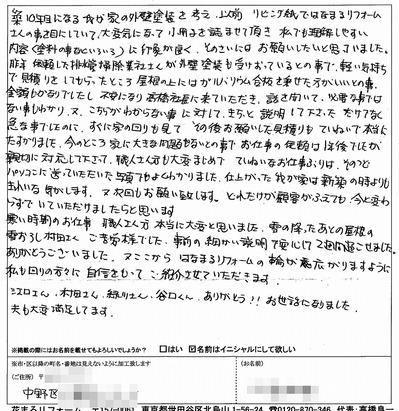 築10年目になる我が家の外壁塗装を考え、以前リビング紙ではなまるリフォーム
さんの事を目にしていて、大変気になって小冊子を読ませて頂き 私でも理解しやすい
内容(塗料の事などいろいろ)に好感が良く、そのさいにはお願いしたいと思っていました。
以前依頼した排水管掃除業社さんが外壁塗装も受けおっているとの事で、軽い気持ち
で見積りをしてもらったところ屋根の上にはガルバリウム合板を乗せた方がいいとの事、
金額もかなりでしたし 不安になり高橋社長に来ていただき、話を聞いて、必要な事では
ない事もわかり、又、こちらがわからない事に対して、きちっと説明して下さった だけでなく
急な事でしたのに、すぐに家の回りも見て その後お願いした見積りもていねいで本当に
たすかりました、今のところ家に大きな問題もないとの事で お仕事の依頼は後後でしたが
親切に対応して下さって、職人さんも大変まじめで ていねいなお仕事ぶりは、そのつど
パソコンに送っていただいた写真でもよくわかりました、仕上がった我が家は新築の時よりも
きれいな気がします。又次回もお願い致します。どれだけか顧客がふえても、今と変わ
らずでいていただけましたらと思います
寒い時期のお仕事 職人さん方 本当に大変と思いました、雪の降ったあとの屋根の
雪おろし 木田さん ご苦労様でした、事前の細かい説明で安心して2週間過ごせました。
ありがとうございました。 ここから はなまるリフォームの輪が裾広がりますように
私も回りの方々に 自信をもって ご紹介させていただきます。
江口さん、木田さん、緑川さん、谷口くん、ありがとう!! お世話になりました。
夫も大変満足してます。
※掲載の際にはお名前を載せてもよろしいでしょうか? □はい ☑名前はイニシャルにして欲しい
※市・区以降の町名・番地は見えないように加工致します
(ご住所) 〒
(お名前)
中野区
花まるリフォーム 〒157-0061 東京都世田谷区北烏山1-56-24 ☎0120-870-346 代表:高橋良一